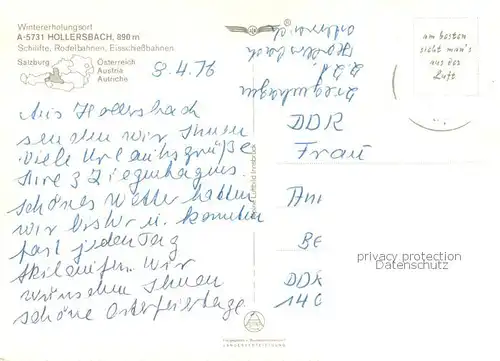 Wintererholungsort
A-5731 HOLLERSBACH, 890 m
Schilifte, Rodelbahnen, Eisschießbahnen
Salzburg
Österreich
Austria
Autriche
8.4.76
Aus Hollersbach
senden wir Ihnen
viele Urlaubsgrüße
Ihre 3 Ziegenhagens.
schönes Wetter hatten
wir bisher u. konnten
fast jeden Tag
Skilaufen. Wir
wünschen Ihnen
schöne Osterfeiertage
Ziegenhagen
Hollersbach
Österreich
am besten
sieht man's
aus der
Luft
DDR
Frau
DDR
privacy protection
Datenschutz